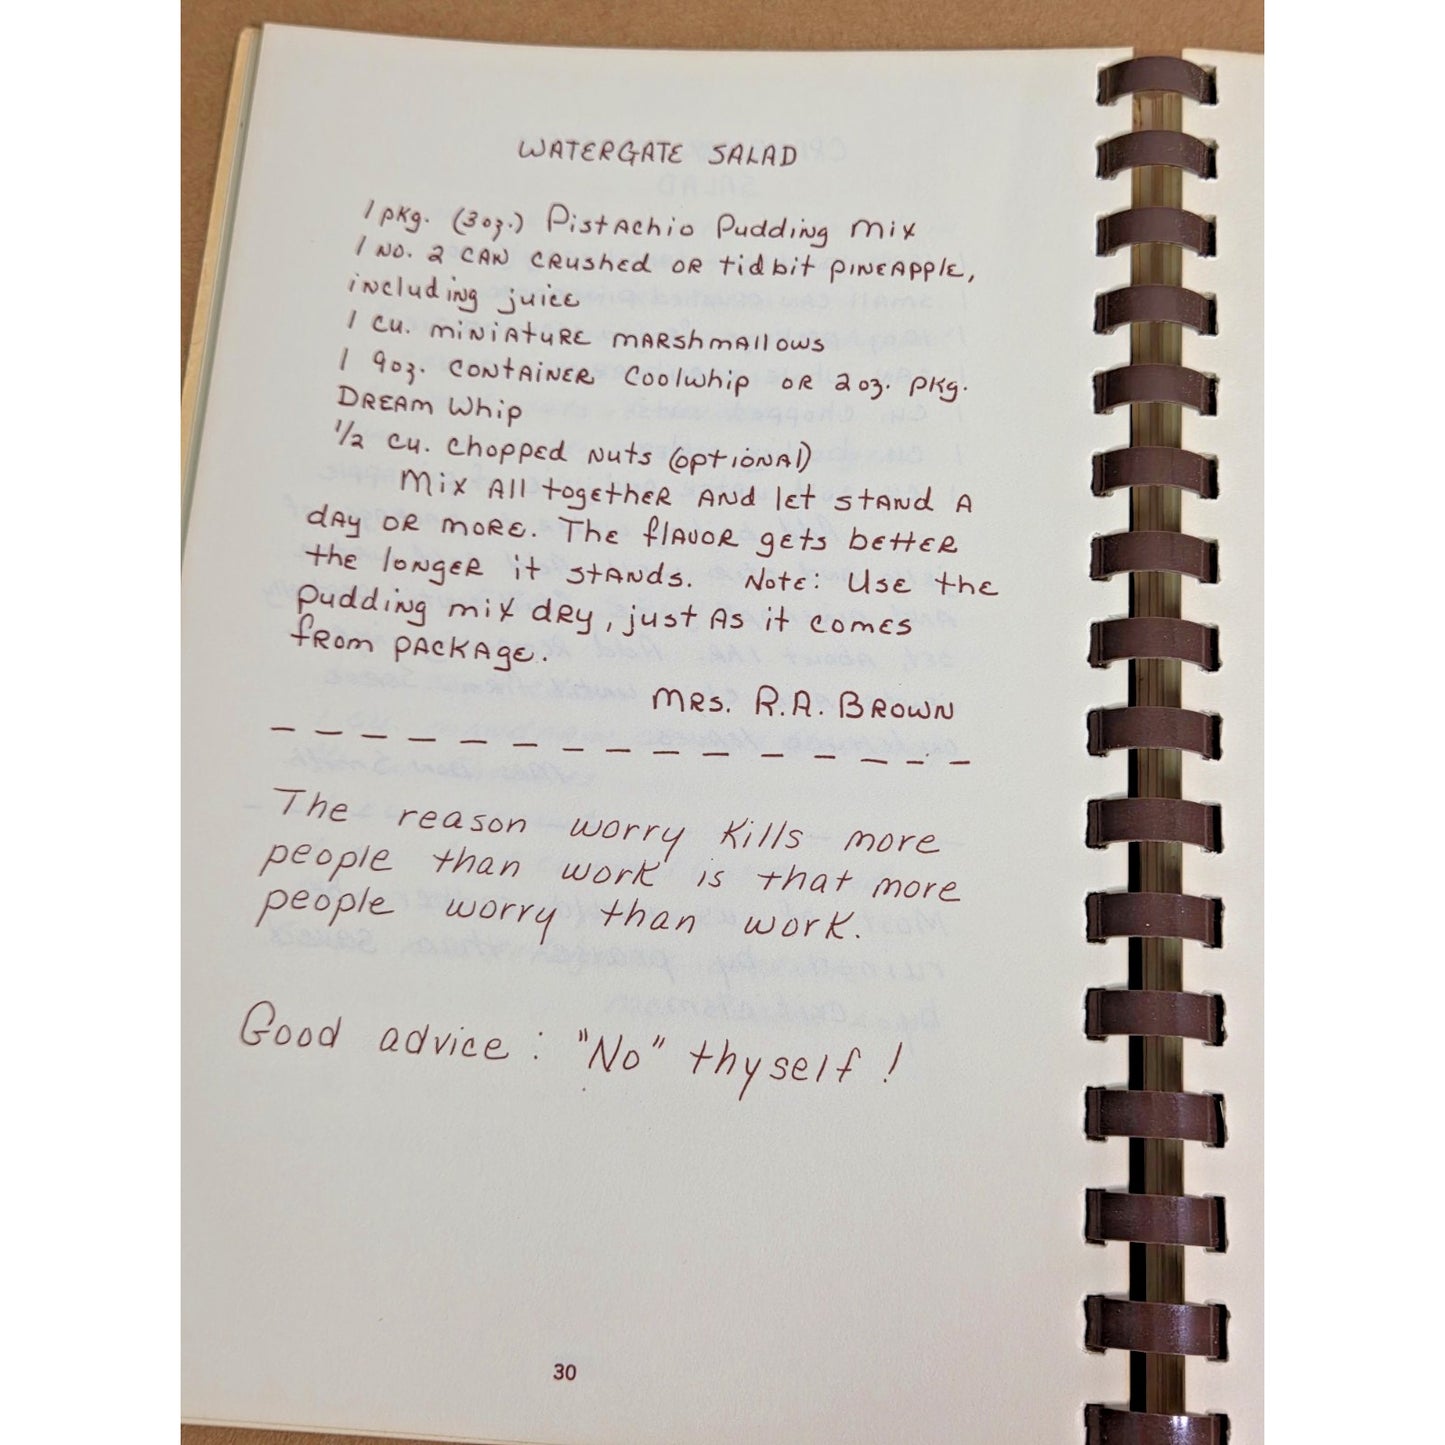 WATERGATE SALAD
1 pkg. (3oz.) Pistachio Pudding Mix
1 No. 2 can crushed or tidbit pineapple,
including juice
1 cu. miniature marshmallows
1 9oz. container Coolwhip or 2oz. pkg.
Dream Whip
1/2 cu. chopped nuts (optional)
Mix all together and let stand a
day or more. The flavor gets better
the longer it stands. Note: Use the
pudding mix dry, just as it comes
from package.
Mrs. R.A. Brown
The reason worry kills more
people than work is that more
people worry than work.
Good advice: "No" thyself!
30